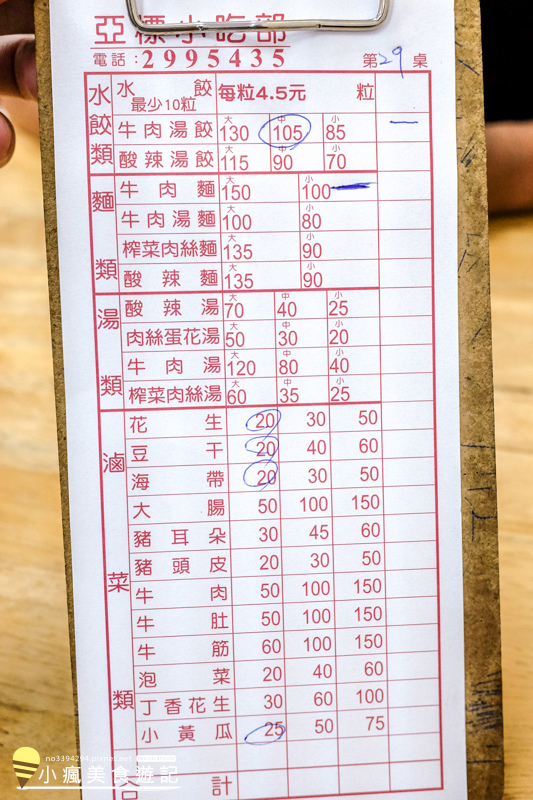 亞標小吃部
電話：2995435
第29桌
水餃類
水餃 最少10粒 每粒4.5元 粒
牛肉湯餃 大130 中105 小85 一
酸辣湯餃 大115 中90 小70
麵類
牛肉麵 大150 小100 一
牛肉湯麵 大100 小80
榨菜肉絲麵 大135 小90
酸辣麵 大135 小90
湯類
酸辣湯 大70 中40 小25
肉絲蛋花湯 大50 中30 小20
牛肉湯 大120 中80 小40
榨菜肉絲湯 大60 中35 小25
滷菜類
花生 20 30 50
豆干 20 40 60
海帶 20 30 50
大腸 50 100 150
豬耳朵 30 45 60
豬頭皮 20 30 50
牛肉 50 100 150
牛肚 50 100 150
牛筋 60 100 150
泡菜 20 40 60
丁香花生 30 60 100
小黃瓜 25 50 75
合計
no3394294.pixnet.net
小瘋美食遊記